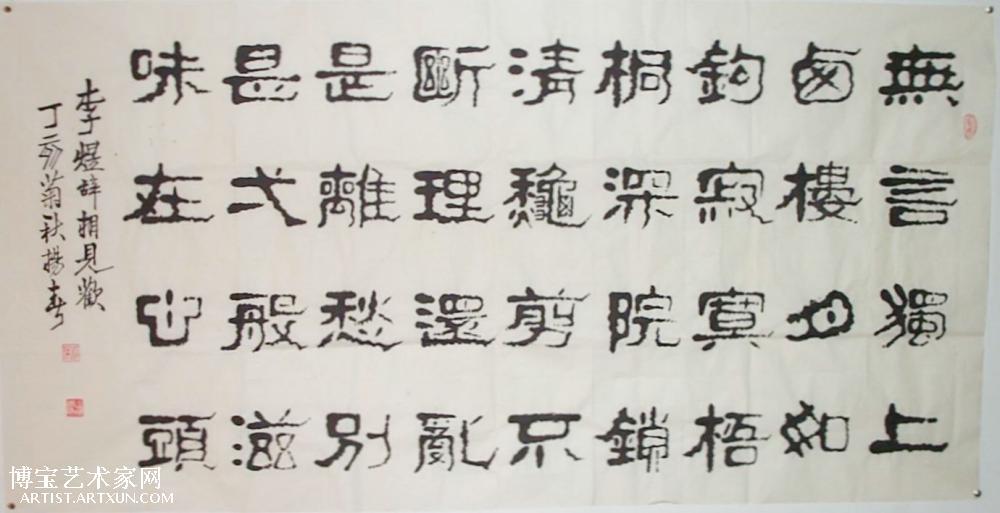 無言獨上
卥樓月如
鉤寂寞梧
桐深院鎖
清龝剪不
斷理還亂
是離愁別
是弌般滋
味在心頭
李煜辞相見歡
丁亥菊秋
博宝艺术家网
ARTIST.ARTXUN.COM